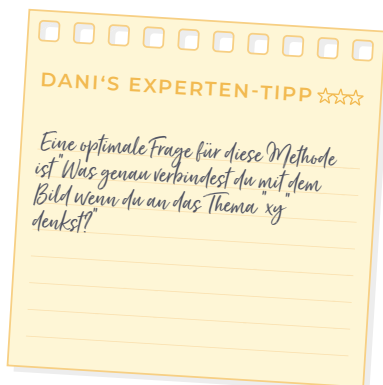 DANI'S EXPERTEN-TIPP
Eine optimale Frage für diese Methode
ist "Was genau verbindest du mit dem
Bild wenn du an das Thema "xy"
denkst?"